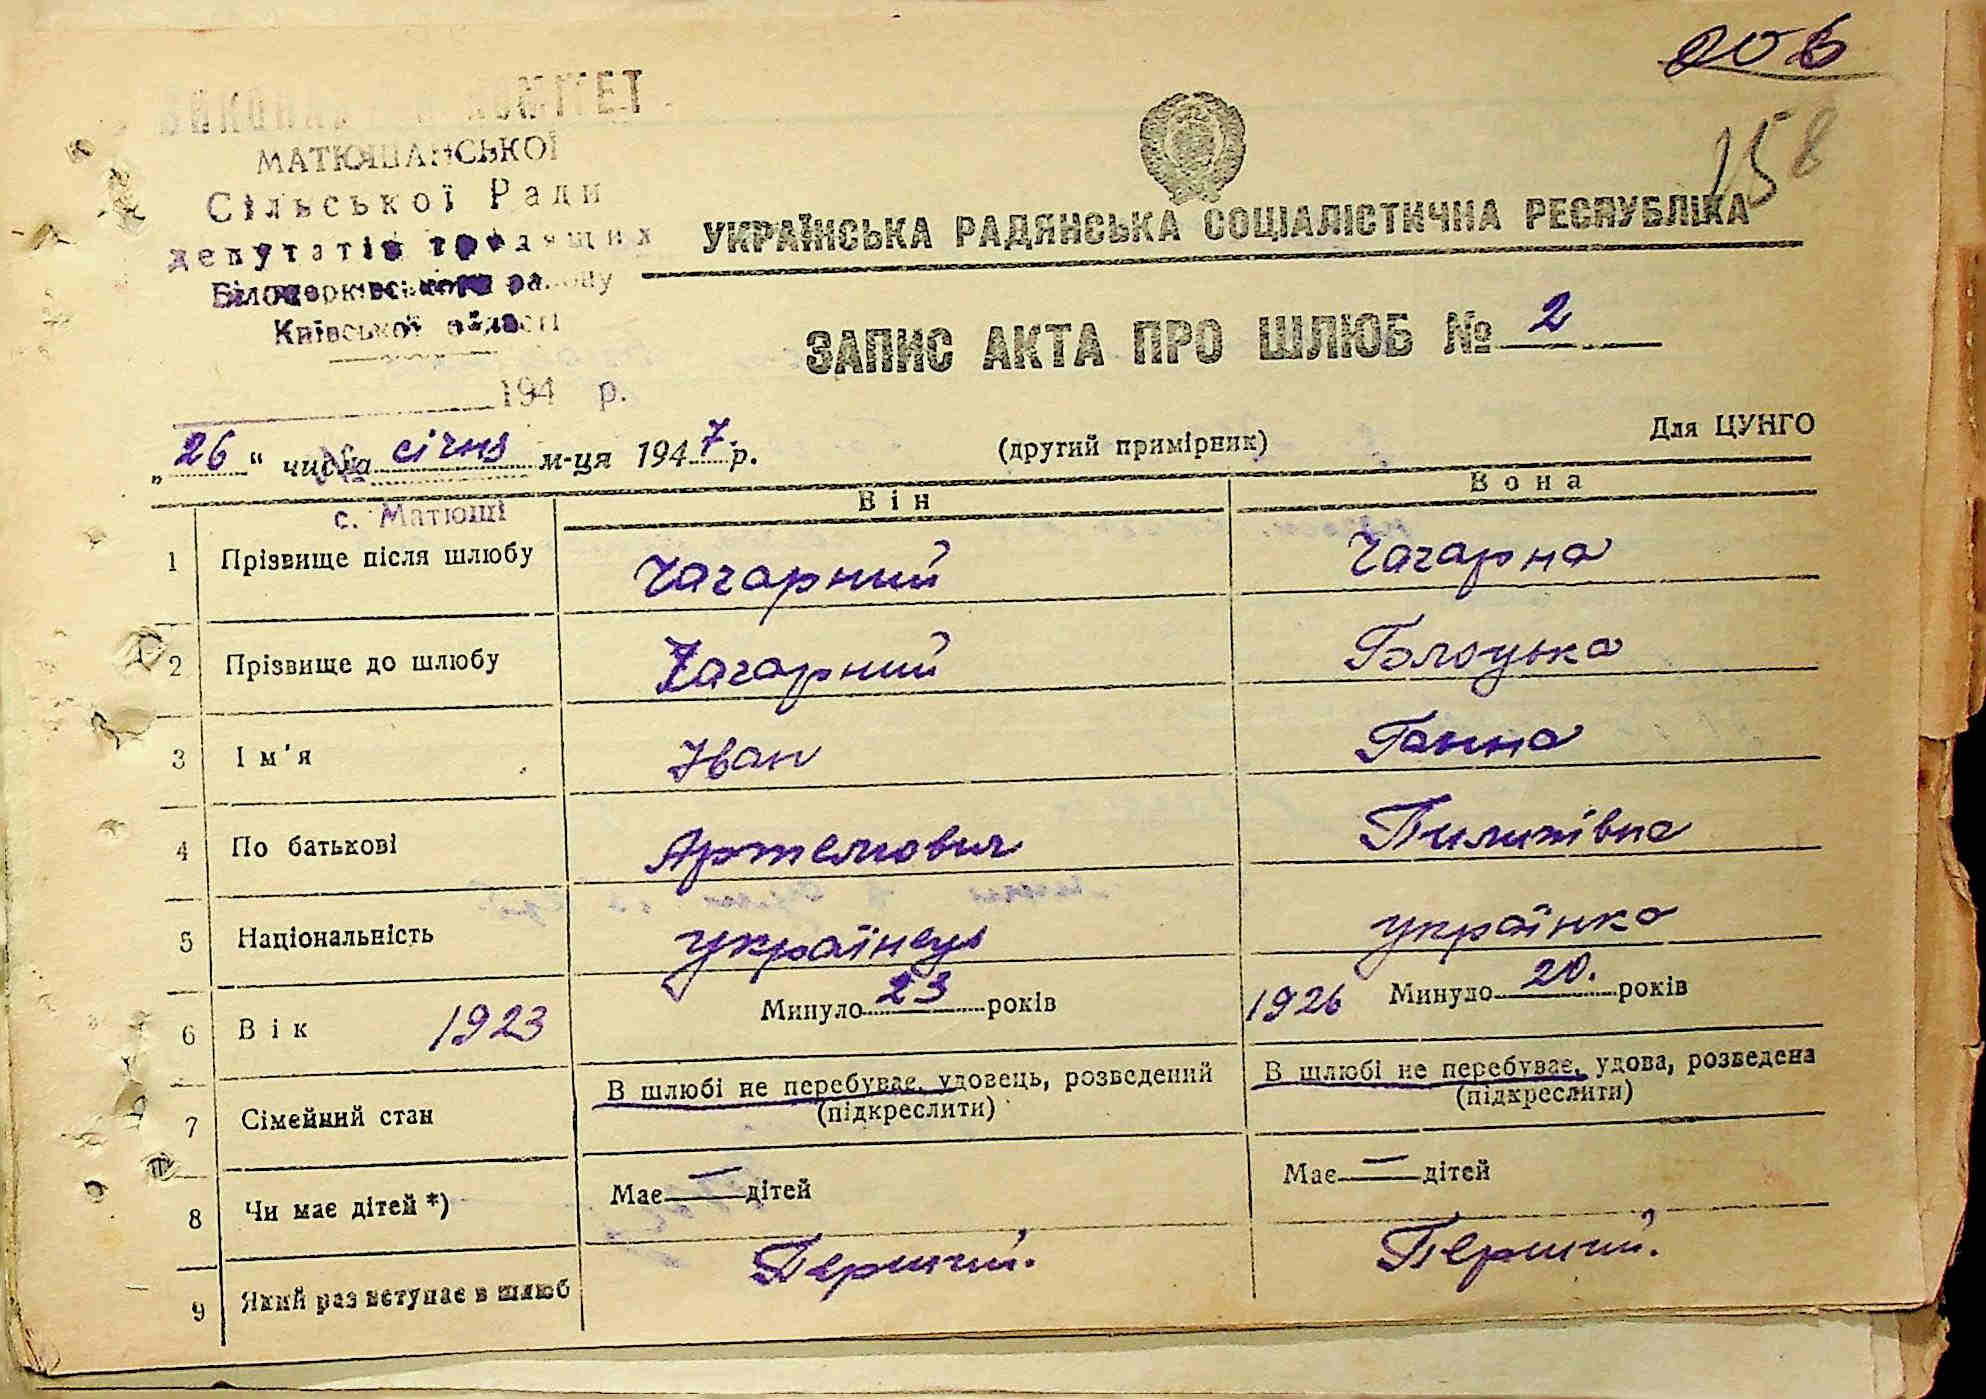 206
158
ВИКОНАВЧИЙ КОМІТЕТ
МАТЮШАНСЬКОЇ
Сільської Ради
депутатів трудящих
Білоцерківського району
Київської області
194 р.
УКРАЇНСЬКА РАДЯНСЬКА СОЦІАЛІСТИЧНА РЕСПУБЛІКА
ЗАПИС АКТА ПРО ШЛЮБ № 2
„26“ числа січня м-ця 1947 р.
(другий примірник)
Для ЦУНГО
с. Матюші
Він
Вона
1 Прізвище після шлюбу Чагарний Чагарна
2 Прізвище до шлюбу Чагарний Голоцька
3 Ім'я Іван Ганна
4 По батькові Артемович Пилипівна
5 Національність українець українка
6 Вік 1923 Минуло 23 років 1926 Минуло 20. років
7 Сімейний стан В шлюбі не перебуває, удовець, розведений В шлюбі не перебуває, удова, розведена
(підкреслити) (підкреслити)
8 Чи має дітей *) Має — дітей Має — дітей
9 Який раз вступає в шлюб Перший. Перший.